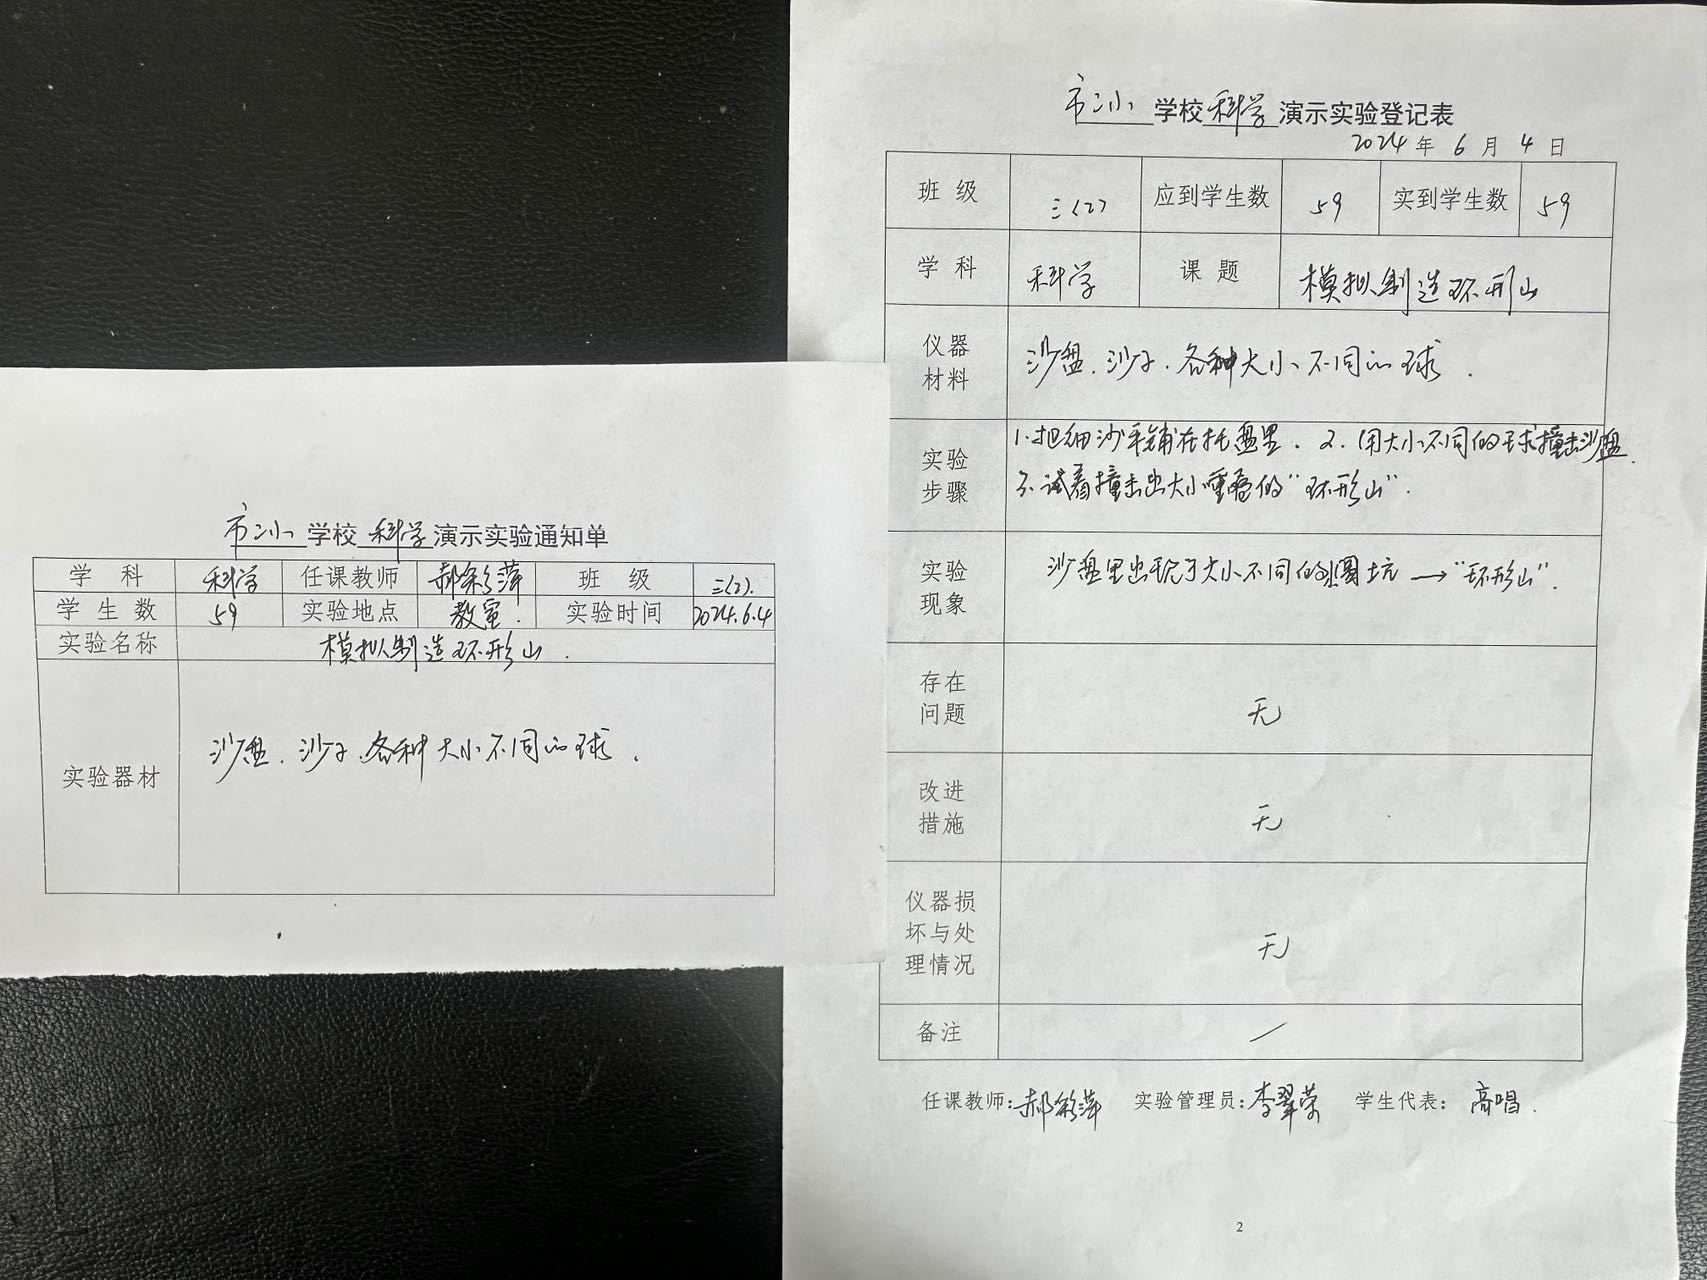 市三小 学校 科学 演示实验通知单
学 科 科学 任课教师 郝彩萍 班 级 三(2).
学 生 数 59 实验地点 教室. 实验时间 2024.6.4
实验名称 模拟制造环形山.
实验器材 沙盘、沙子、各种大小不同的球.
市三小 学校 科学 演示实验登记表
2024 年 6 月 4 日
班 级 三(2) 应到学生数 59 实到学生数 59
学 科 科学 课 题 模拟制造环形山
仪器
材料
沙盘、沙子、各种大小不同的球.
实验
步骤
1.把细沙平铺在托盘里. 2.用大小不同的球撞击沙盘.
3.试着撞击出大小重叠的“环形山”.
实验
现象
沙盘里出现了大小不同的圆坑→“环形山”.
存在
问题
无
改进
措施
无
仪器损
坏与处
理情况
无
备注 /
任课教师:郝彩萍 实验管理员:李翠荣 学生代表: 高唱.
2